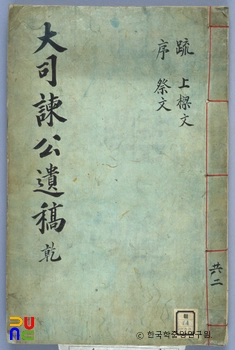 疏 上樑文
序 祭文
大司諫公遺稿 乾
共二
© 한국학중앙연구원